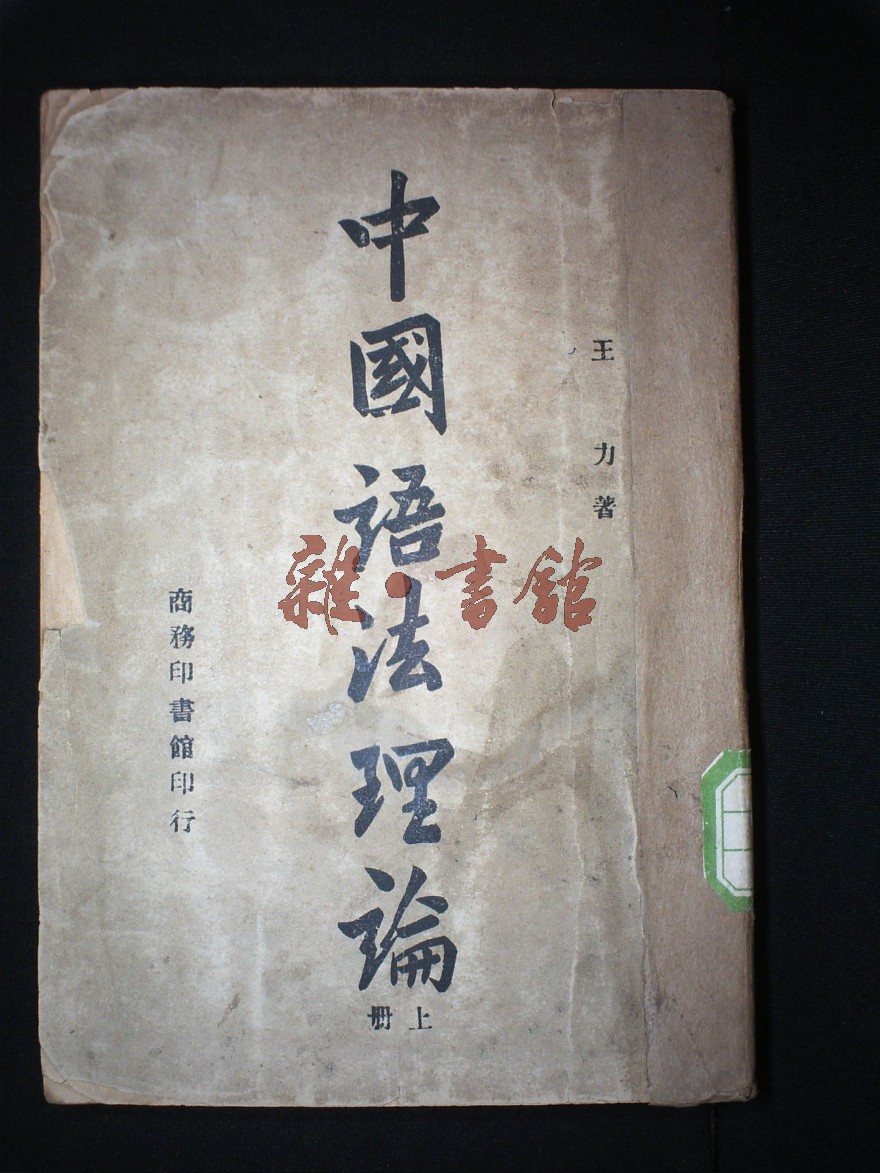 王力著
中國語法理論
上册
商務印書館印行
雜·書館